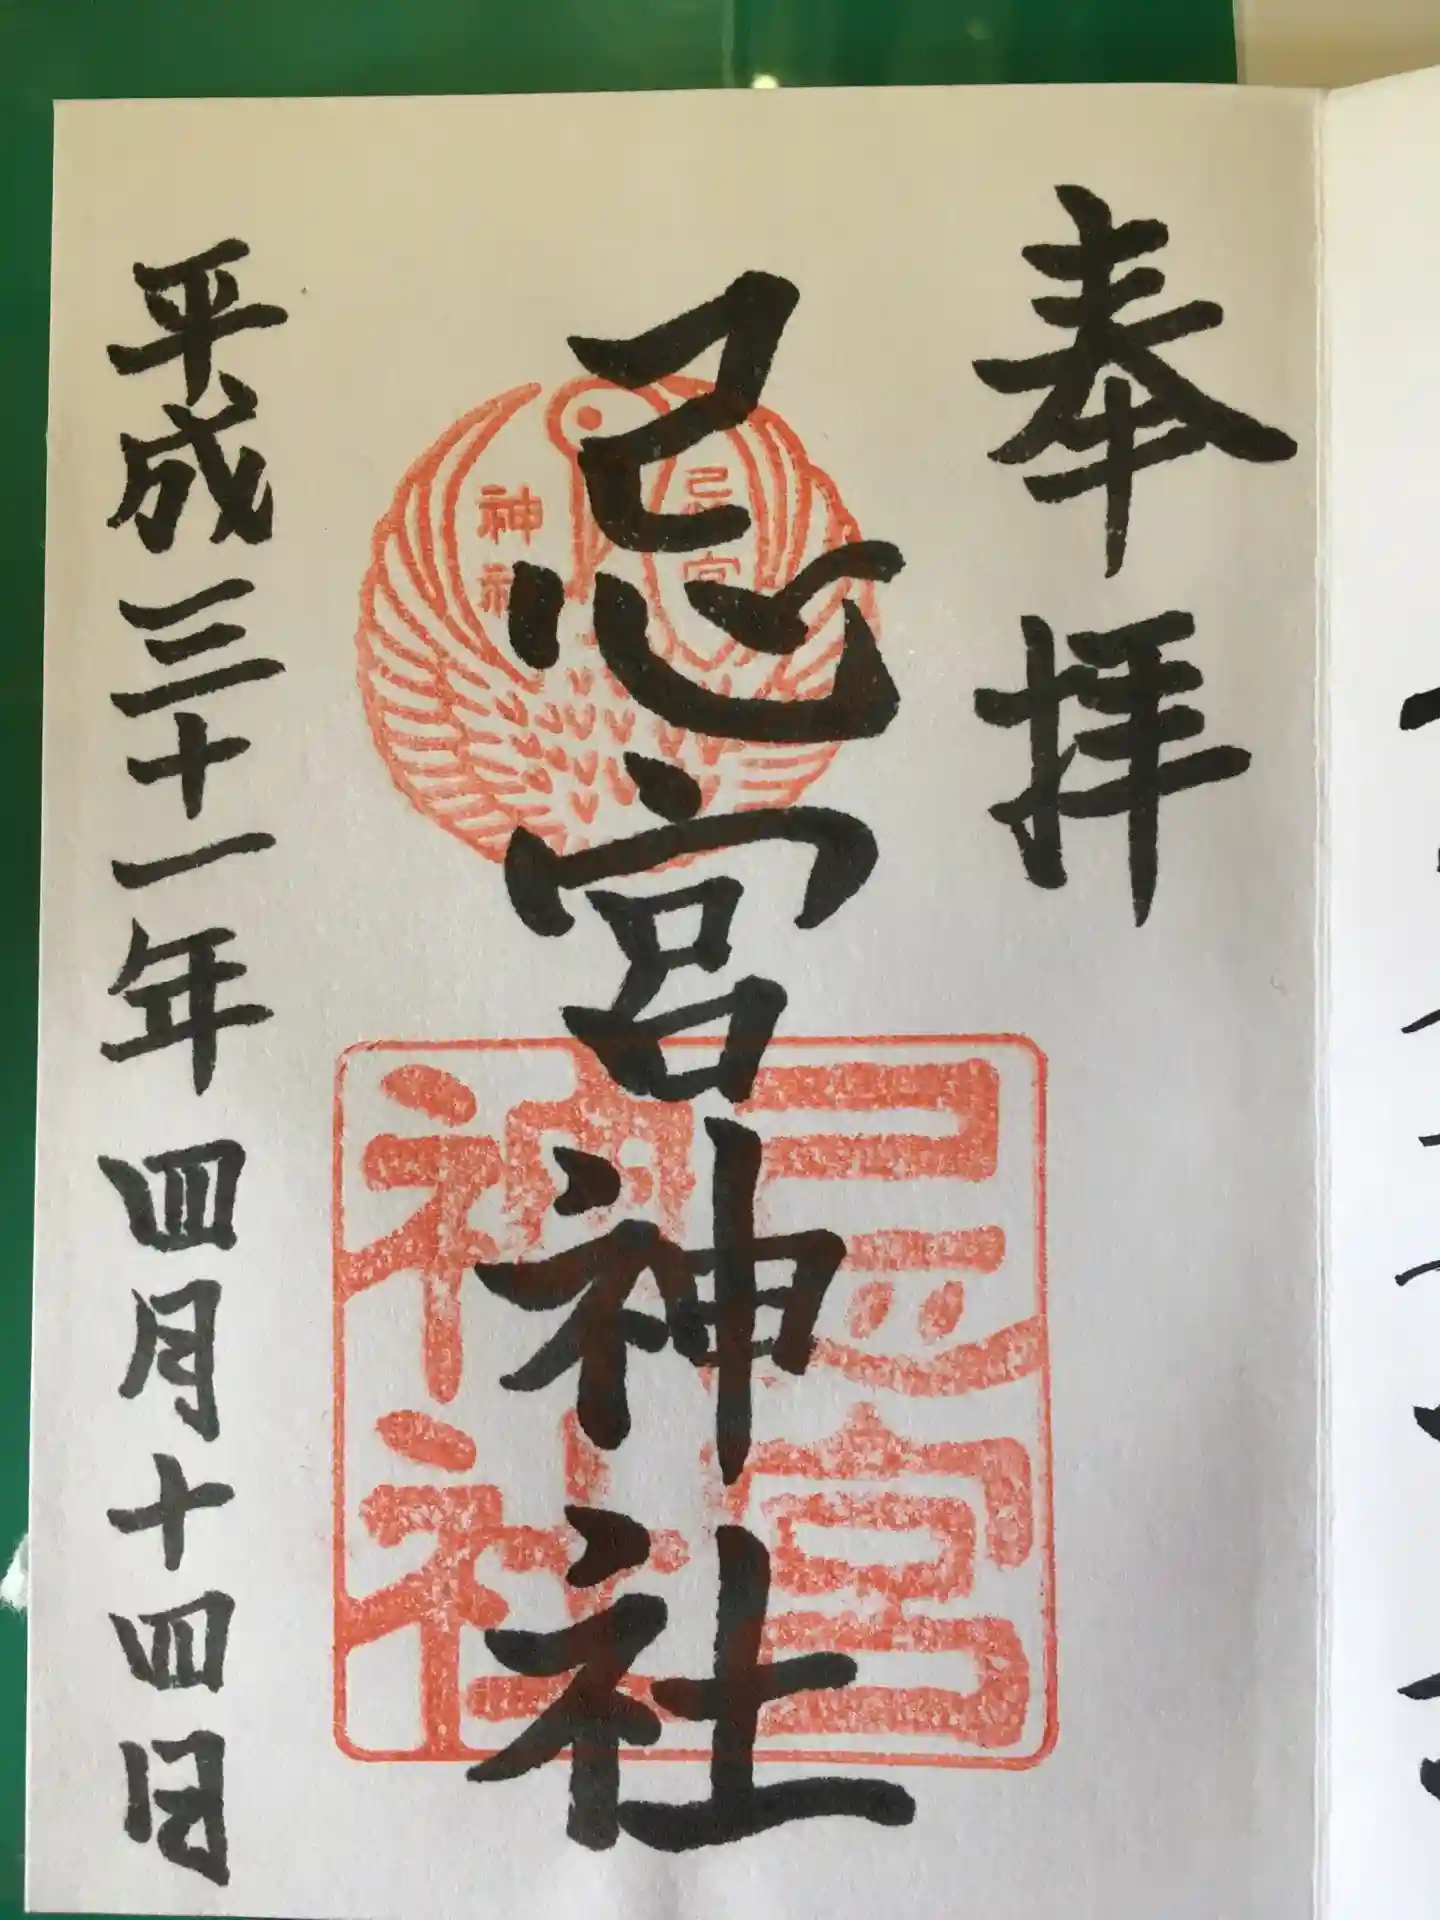 奉拝
忌宮神社
平成三十一年四月十四日
忌宮
神社
忌宮
神社